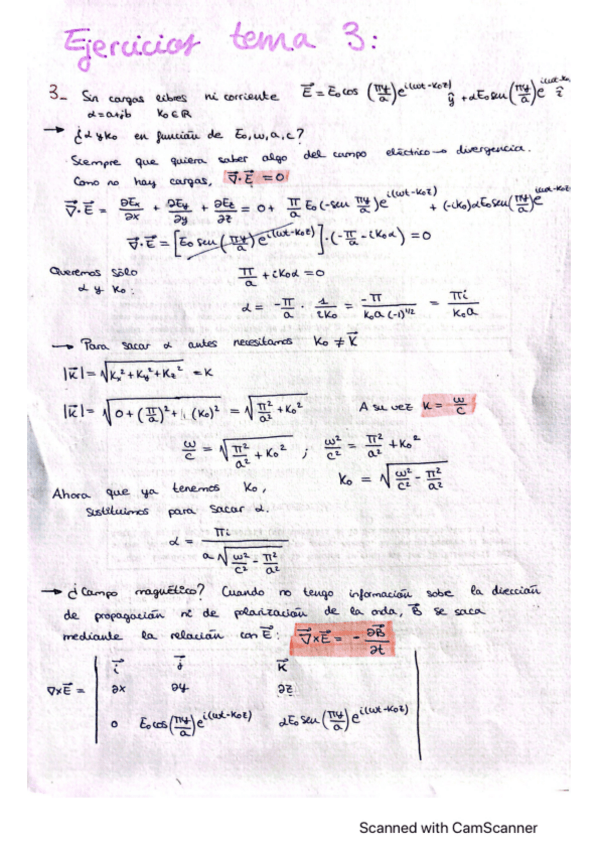 Ejercicios tema 3:
3_ Sin cargas libres ni corriente E⃗ = E₀cos (πy/a) e^{i(ωt-k₀z)} ŷ + αE₀sen(πy/a) e^{i(ωt-k₀z)} ẑ
α=a+jb k₀∈ℝ
→ ¿α y k₀ en función de E₀, ω, a, c?
Siempre que quiera saber algo del campo eléctrico → divergencia.
Como no hay cargas, ∇⃗·E⃗ = 0
∇⃗·E⃗ = ∂Ex/∂x + ∂Ey/∂y + ∂Ez/∂z = 0 + π/a E₀(-sen πy/a) e^{i(ωt-k₀z)} + (-ik₀)αE₀sen(πy/a) e^{i(ωt-k₀z)}
∇⃗·E⃗ = [E₀ sen(πy/a) e^{i(ωt-k₀z)}]·(-π/a - ik₀α) = 0
Queremos sólo π/a + ik₀α = 0
α y k₀: α = -π/a · 1/ik₀ = -π/k₀a(-1)^{1/2} = πi/k₀a
→ Para sacar α antes necesitamos k₀ ≠ K⃗
|K⃗| = √(Kx²+Ky²+Kz²) = K
|K⃗| = √(0+(π/a)²+(k₀)²) = √(π²/a² + k₀²) A su vez K = ω/c
ω/c = √(π²/a² + k₀²) ; ω²/c² = π²/a² + k₀²
k₀ = √(ω²/c² - π²/a²)
Ahora que ya tenemos k₀,
sustituimos para sacar α.
α = πi / a√(ω²/c² - π²/a²)
→ ¿Campo magnético? Cuando no tengo información sobe la dirección
de propagación ni de polarización de la onda, B⃗ se saca
mediante la relación con E⃗: ∇⃗×E⃗ = - ∂B⃗/∂t
i⃗ j⃗ k⃗
∇×E⃗ = ∂x ∂y ∂z
0 E₀cos(πy/a) e^{i(ωt-k₀z)} αE₀sen(πy/a) e^{i(ωt-k₀z)}
Scanned with CamScanner